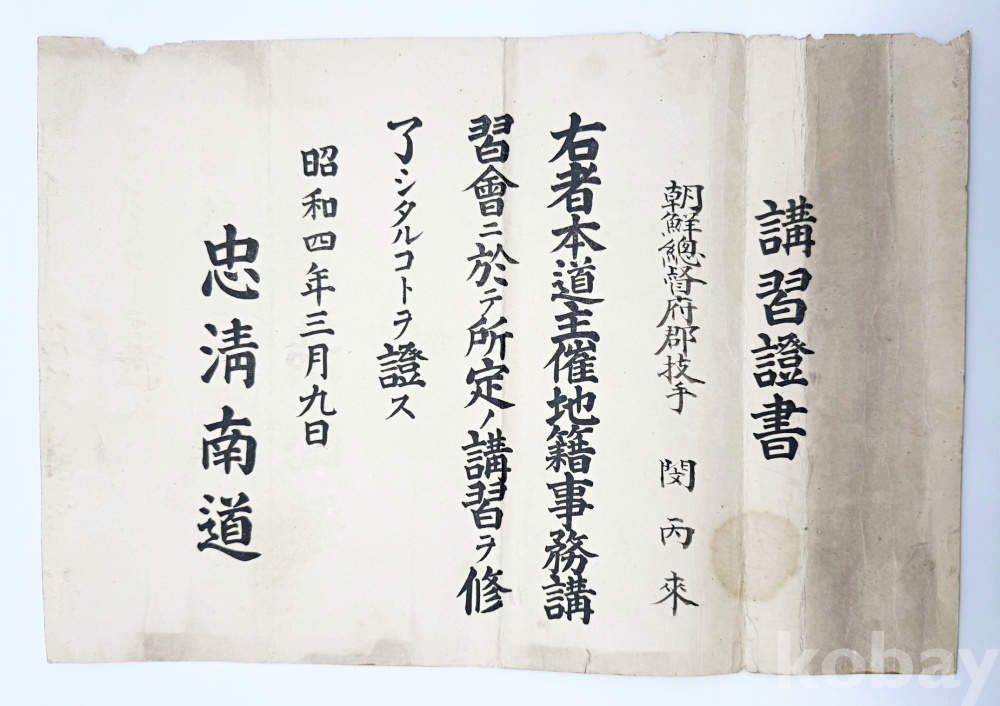 講習證書
朝鮮總督府郡技手 閔丙來
右者本道主催地籍事務講
習會ニ於テ所定ノ講習ヲ修
了シタルコトヲ證ス
昭和四年三月九日
忠清南道
kobay